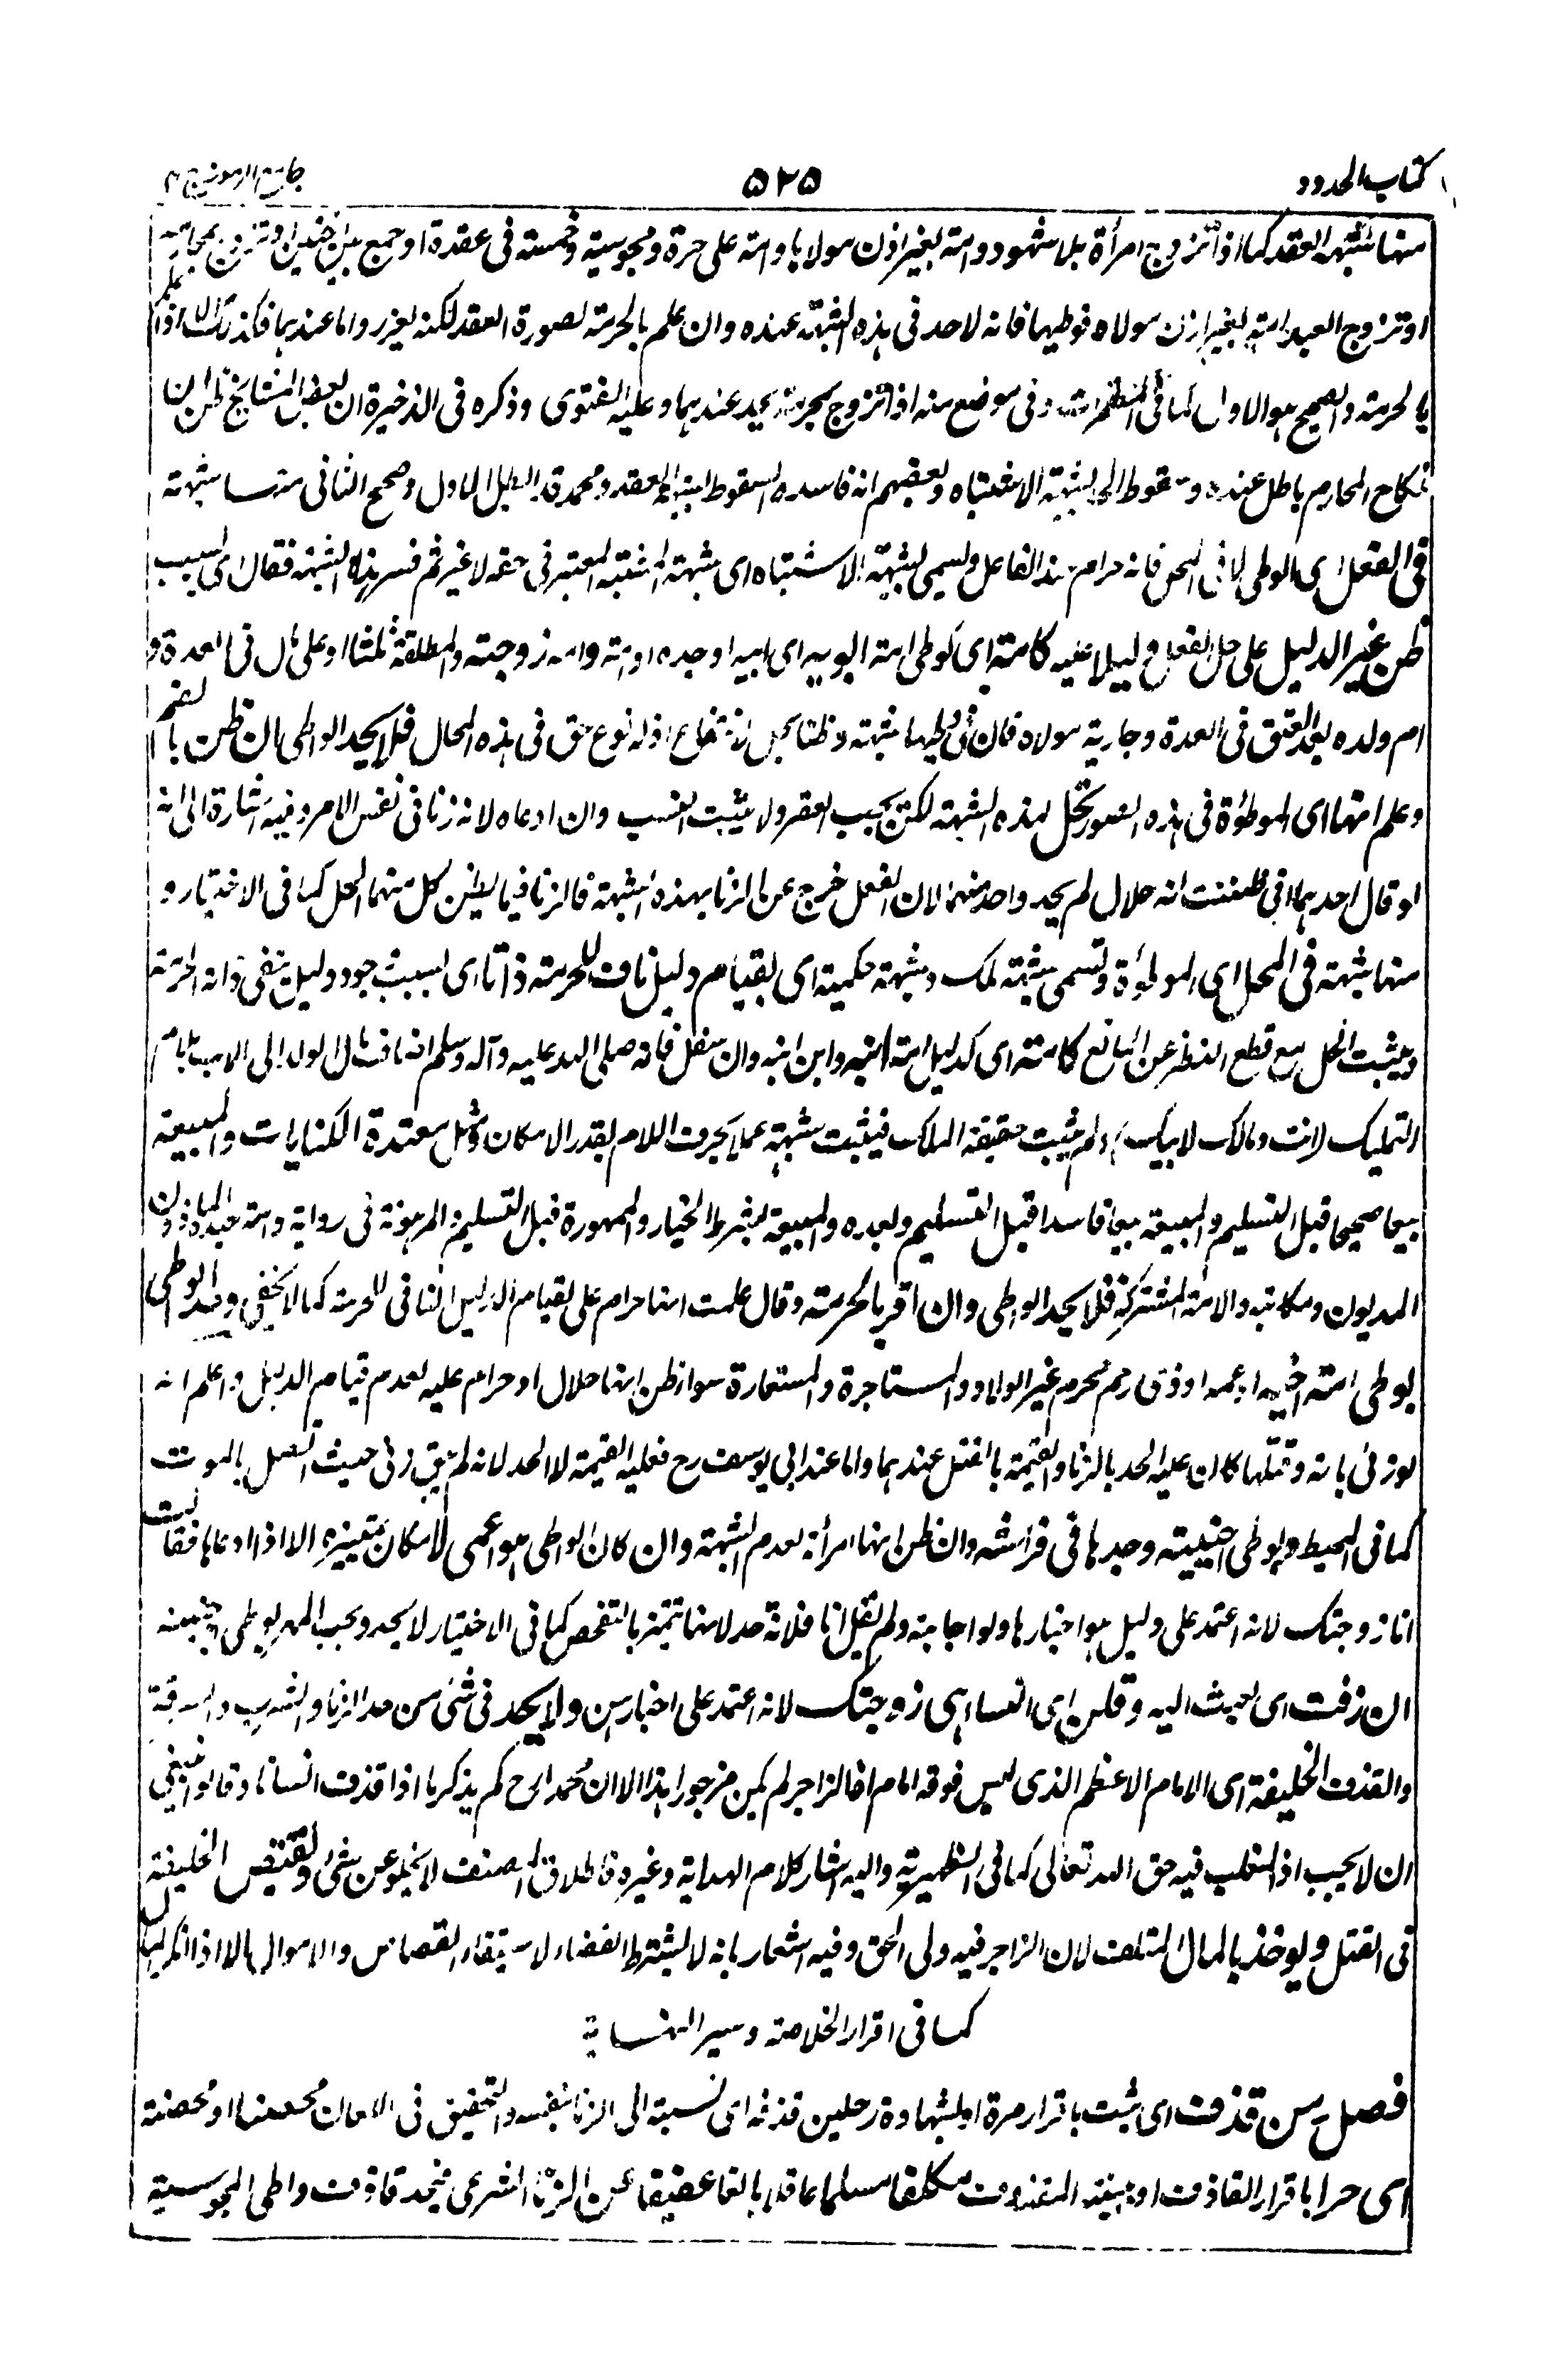 كتاب الحدود
٥٢٥
جامع الرموز ج ٢
منها شبهة العقد كما اذا تزوج امرأة بلا شهود وامة بغير اذن مولاها وامة على حرة ومجوسية وخمسة فى عقدة او جمع بين اختين او تزوج بمحارمه
او تزوج العبد امة بغير اذن مولاه فوطيها فانه لا حد فى هذه الشبهة عنده وان علم بالحرمة لصورة العقد لكنه يعزر واما عندهما فكذلك الا اذا علم
بالحرمة والصحيح هو الاول كما فى المضمرات وفى موضع منه اذا تزوج بمحرمة يحد عندهما وعليه الفتوى وذكره فى الذخيرة ان بعض المشايخ ظن ان
نكاح المحارم باطل عنده وسقوط الحد لشبهة الاشتباه وبعضهم انه فاسد والسقوط لشبهة العقد ومحمد قد ابطل الاول وصحح الثانى منها شبهة
فى الفعل اى الوطى لا فى المحل فانه حرام عند الفاعل وتسمى بشبهة الاشتباه اى شبهة المشتبه المعتبر فى حقه لا غير ثم فسر هذه الشبهة فقال اى بسبب
ظن غير الدليل على حل الفعل دليلا عليه كامة اى كوطى امة ابويه اى ابيه او جده او امه وامة زوجته والمطلقة ثلثا او على مال فى العدة و
ام ولده بعد العتق فى العدة وجارية مولاه فان فى وطيها شبهة وظنا بحل الانتفاع اذ له نوع حق فى هذه المحال فلا يحد الواطى ان ظن بالفتح
وعلم انها اى الموطوءة فى هذه الصور تحل لهذه الشبهة لكن يجب العقر ولا يثبت النسب وان ادعاه لانه زنا فى نفس الامر وفيه اشارة الى انه
لو قال احدهما انى ظننت انه حلال لم يحد واحد منهما لان الفعل خرج عن الزنا بهذه الشبهة فالزنا فيما يظن كل منهما الحل كما فى الاختيار و
منها شبهة فى المحل اى الموطوءة وتسمى شبهة ملك وشبهة حكمية اى بقيام دليل ناف للحرمة ذاتا اى بسبب وجود دليل ينفى ذاته الحرمة
ويثبت الحل مع قطع النظر عن المانع كامة اى كدليل امة ابنه وابن ابنه وان سفل فانه صلى الله عليه وآله وسلم اضاف مال الولد الى الاب بلام
التمليك لانت ومالك لابيك ولم يثبت حقيقة الملك فيثبت شبهة عملا بحرف اللام بقدر الامكان ومثل معتدة الكنايات والمبيعة
بيعا صحيحا قبل التسليم والمبيعة بيعا فاسدا قبل التسليم وبعده والمبيعة بشرط الخيار والممهورة قبل التسليم والمرهونة فى رواية وامة عبده الماذون
المديون ومكاتبه والامة المشتركة فلا يحد الواطى وان اقر بالحرمة وقال علمت انها حرام على لقيام الدليل النافى للحرمة كما لا يخفى وحد الواطى
بوطى امة اخيه او عمه او ذى رحم محرم غير الولاد والمستاجرة والمستعارة سواء ظن انها حلال او حرام عليه لعدم قيام الدليل واعلم انه
لو زنى بامة وقتلها كان عليه الحد بالزنا والقيمة بالقتل عندهما واما عند ابى يوسف رح فعليه القيمة لا الحد لانه لم يبق زنى حيث اتصل بالموت
كما فى المحيط وبوطى اجنبية وجدها فى فراشه وان ظن انها امرأته لعدم الشبهة وان كان الواطى هو اعمى لامكان تمييزه الا اذا دعاها فقالت
انا زوجتك لانه اعتمد على دليل هو اخبارها ولو اجابته ولم تقل انا فلانة حد لانها تتميز بالتفحص كما فى الاختيار لا يحد ويجب المهر بوطى اجنبية
ان زفت اى بعثت اليه وقلن اى النساء هى زوجتك لانه اعتمد على اخبارهن ولا يحد فى شئ من حد الزنا والشرب والسرقة
والقذف الخليفة اى الامام الاعظم الذى ليس فوقه امام اذ الزاجر لم يكن مزجورا هذا الا ان محمدا رح لم يذكر ما اذا قذف انسانا وقالوا ينبغى
ان لا يجب اذ المغلب فيه حق الله تعالى كما فى الظهيرية واليه اشار كلام الهداية وغيره فاطلاق المصنف لا يخلو عن شئ ويقتص الخليفة
فى القتل ويوخذ بالمال المتلف لان الزاجر فيه ولى الحق وفيه اشعار بانه لا يشترط القضاء لاستيفاء القصاص والاموال الا اذا انكر
كما فى اقرار الخلاصة وسير النهاية
فصل من قذف اى ثبت باقرار مرة او بشهادة رجلين قذفه اى نسبته الى الزنا بنفسه والتحقيق فى اللعان محصنا او محصنة
اى حرا باقرار القاذف او بينة المقذوف مكلفا مسلما عاقلا بالغا عفيفا عن الزنا الشرعى فيحد قاذف واطى المجوسية